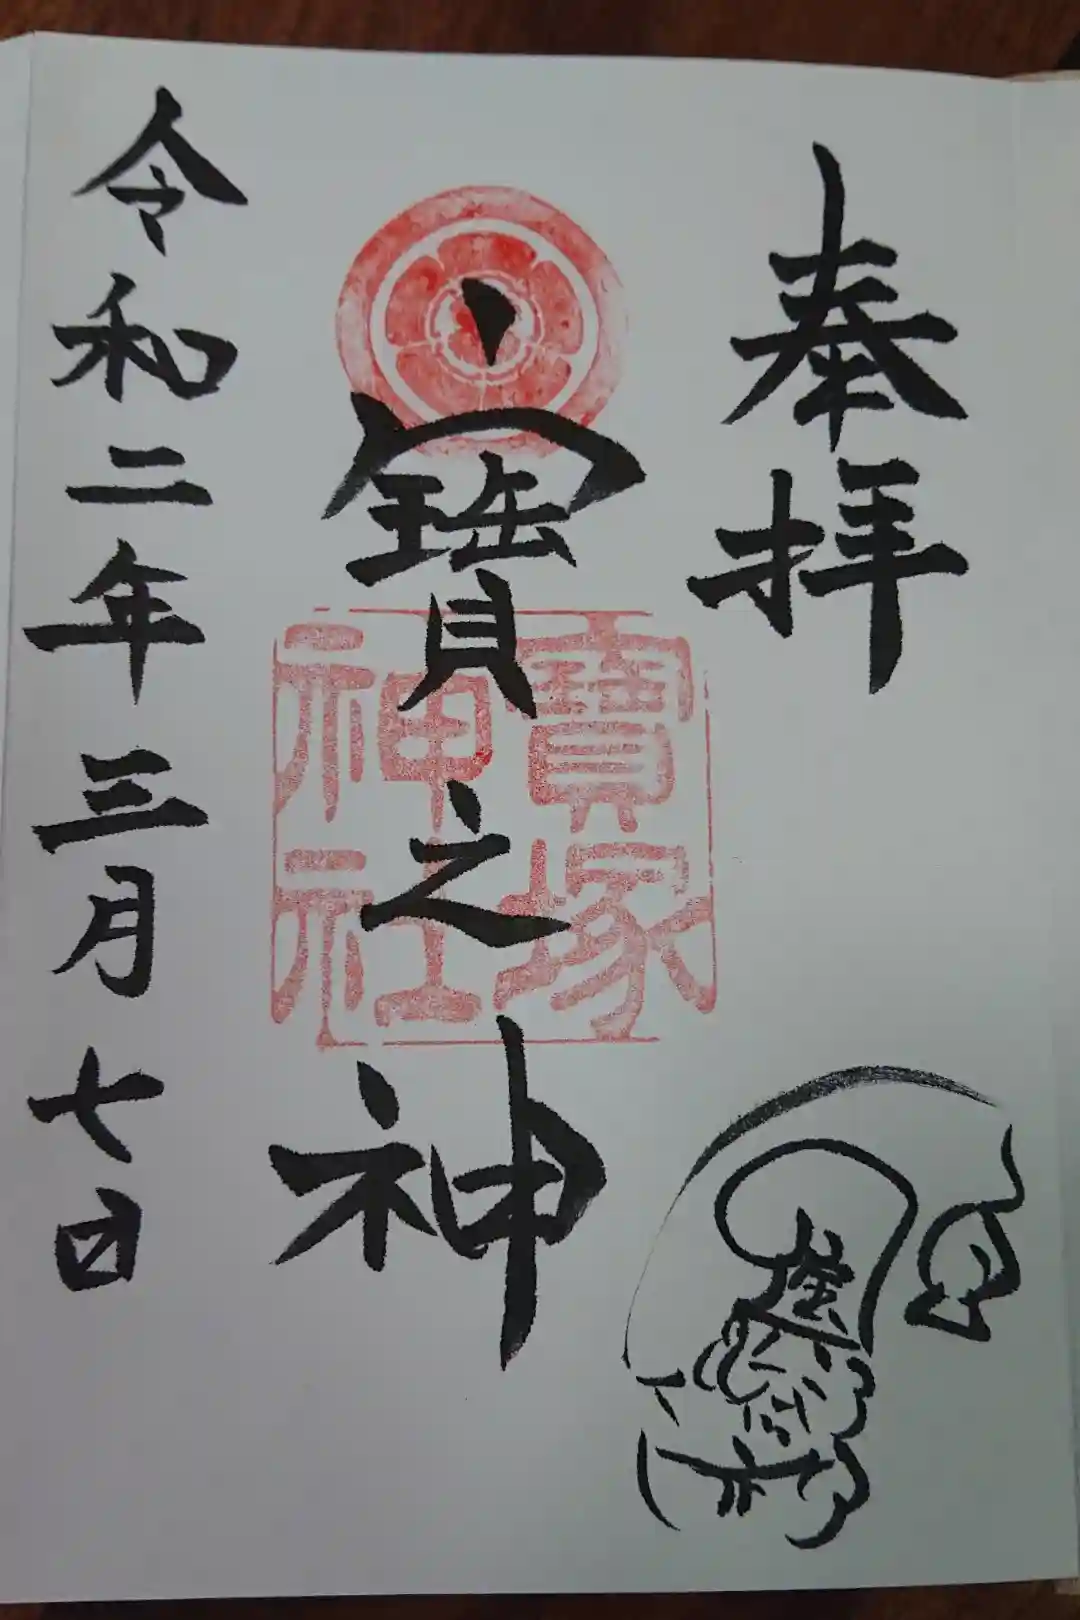 奉拝
寳之神
寳塚
神社
令和二年三月七日